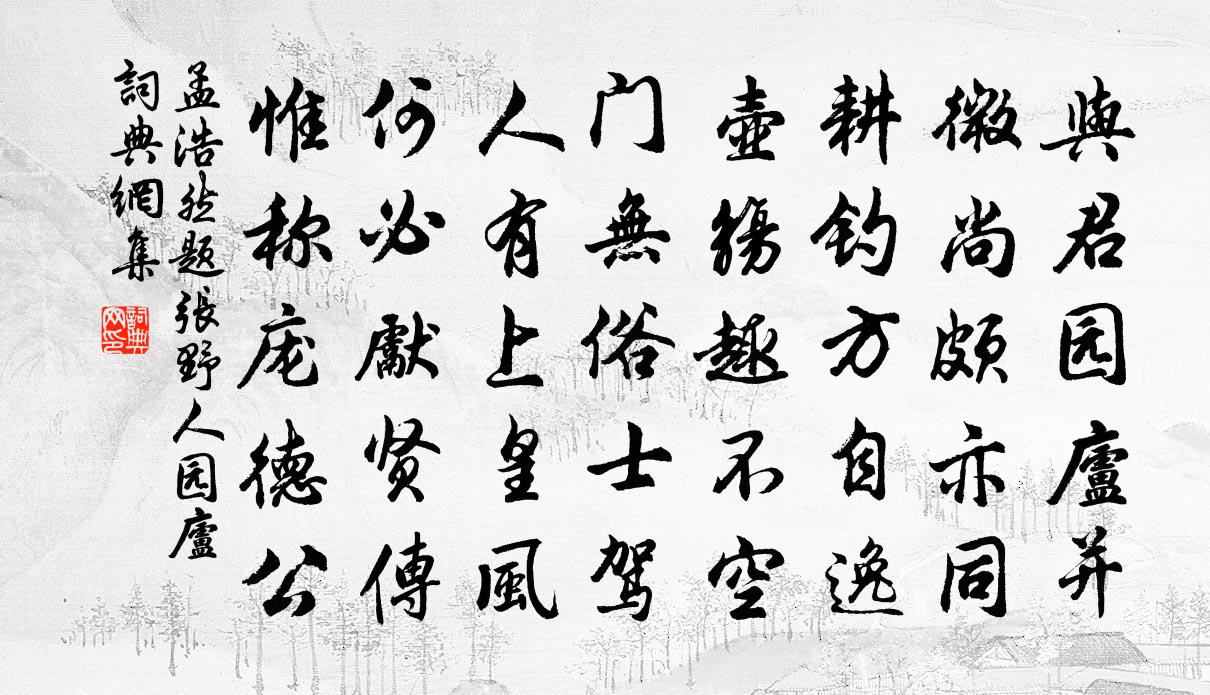 與君园廬并
微尚頗亦同
耕钓方自逸
壺觴趣不空
门無俗士駕
人有上皇風
何必獻贤傳
惟称庞德公
孟浩然题張野人园廬
詞典網集
詞典网印